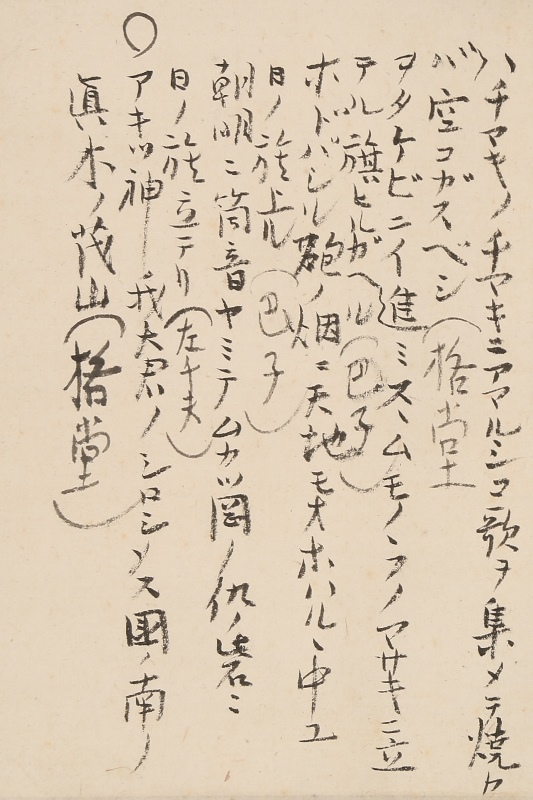 ハチマキノチマキニアマルシコ歌ヲ集メテ焼カ
バ空コガスベシ(格堂
ヲタケビニイ進ミスヽムモノヽフノマサキニ立
テル旗ヒルガヘル(巴子)
ホドバシル砲ノ烟ニ天地モオホハルヽ中ユ
日ノ旗上ル(巴子)
朝明ニ筒音ヤミテムカツ岡ノ仇ノ砦ニ
日ノ旗立テリ(左千夫)
○アキツ神我大君ノシロシメス国ノ南ノ
眞木ノ茂山(格堂)